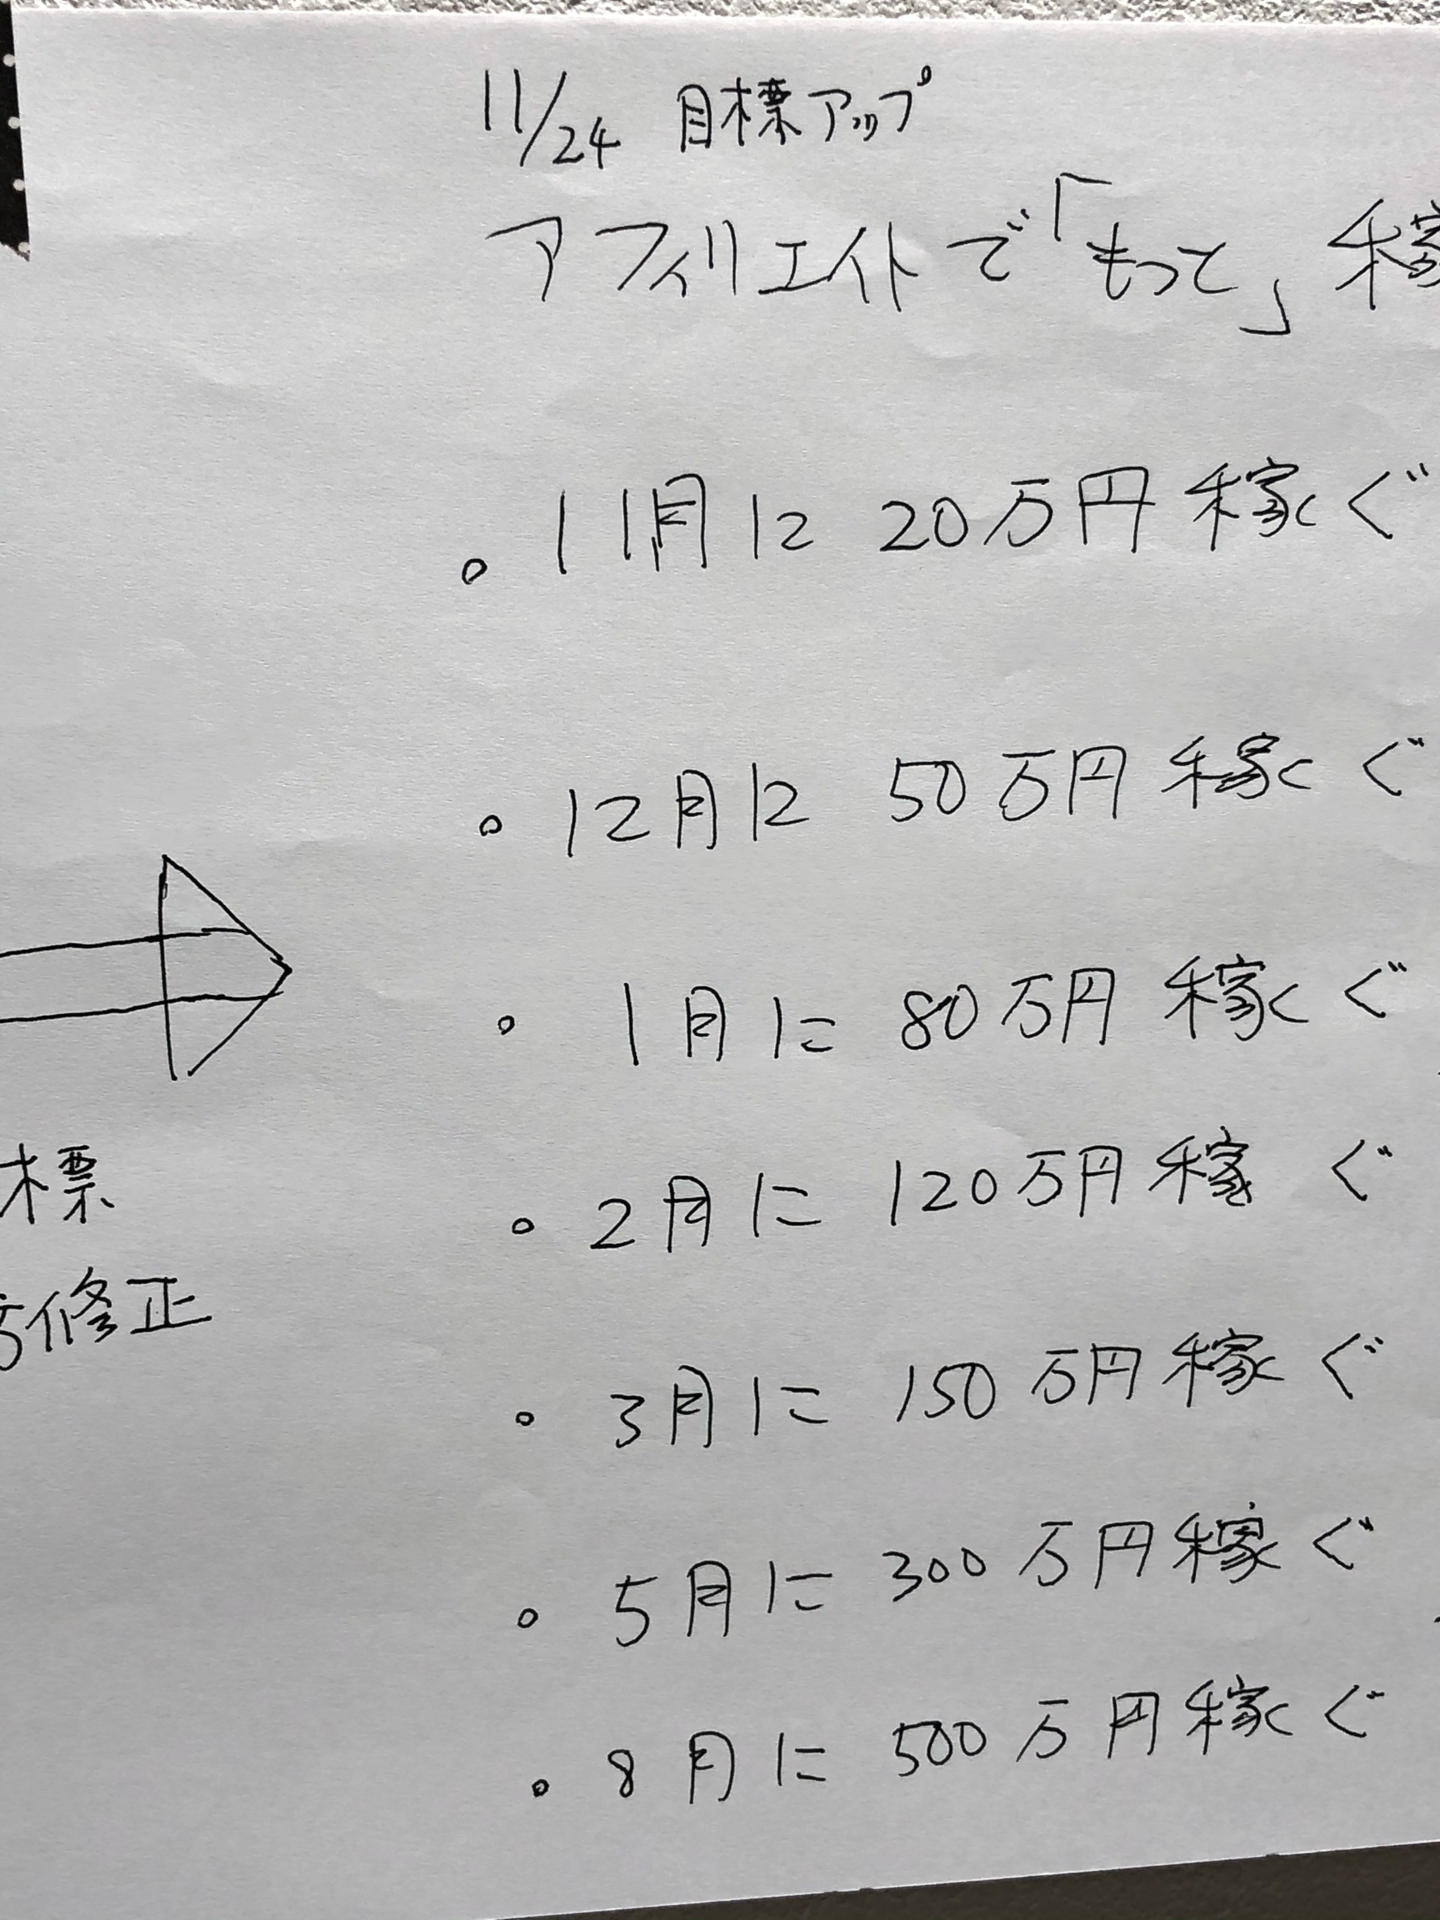 11/24 目標アップ
アフィリエイトで「もっと」稼
。11月に 20万円稼ぐ
。12月に 50万円稼ぐ
。1月に 80万円稼ぐ
。2月に 120万円稼ぐ
。3月に 150万円稼ぐ
。5月に 300万円稼ぐ
。8月に 500万円稼ぐ
標
修正